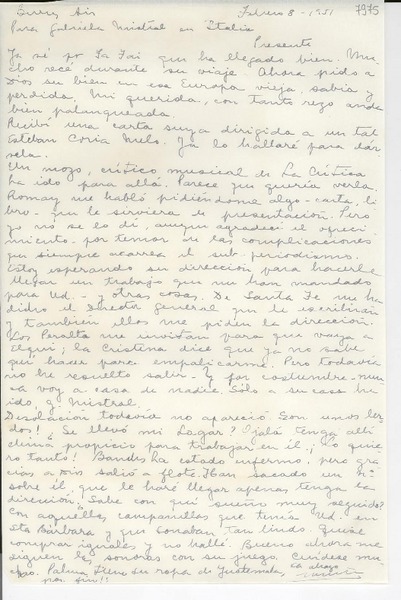 Buenos Aires Febrero 8 - 1951 7975
Para Gabriela Mistral en Italia
Presente
Ya sé por La Fai que ha llegado bien. Mu-
cho recé durante su viaje. Ahora pido a
Dios su bien en esa Europa vieja, sabia y
perdida, Mi querida, con tanto rezo anda
bien palanqueada.
Recibí una carta suya dirigida a un tal
Esteban Coria Mels. Ya lo hallaré para dár-
sela.
Un mozo, crítico musical de La Crítica
ha ido para allá. Parece que quería verla.
Romay me habló pidiéndome algo - carta, li
bro - que le serviera de presentación. Pero
yo no se lo di, aunque agradecí el ofreci-
miento - por temor de las complicaciones
que siempre acarrea el sub-periodismo.
Estoy esperando su dirección para hacerle
llegar un trabajo que me han mandado
para Ud. - y otras cosas. De Santa Fe me ha
pedido el Director general que le escribirán
y también ellos me piden la dirección.
Los Peralta me invitan para que vaya a
Elqui; la Cristina dice que ya no sabe
qué hacer para empalicarme. Pero todavía
no he resuelto salir. Y por costumbre - nun-
ca voy a casa de nadie. Sólo a su casa he
ido, g Mistral.
Desolación todavía no apareció. Son unos ler-
dos! Se llevó mi Lagar? Ojalá tenga allí
clima propicio para trabajar en él; lo quie
ro tanto! Bandy ha estado enfermo, pero gra-
cias a Dios salió a flote. Han sacado un
sobre él, que le haré llegar apenas tenga la
dirección. Sabe con qué sueño muy seguido?
Con aquellas campanillas que tenía Ud. en
Sta Bárbara y que sonaban tan lindo. Quise
comprar iguales y no hallé. Bueno ahora me
siguen las sonoras con su juego. Cuídese mu-
cho. Palma tiene su ropa de Guatemala. La abraza